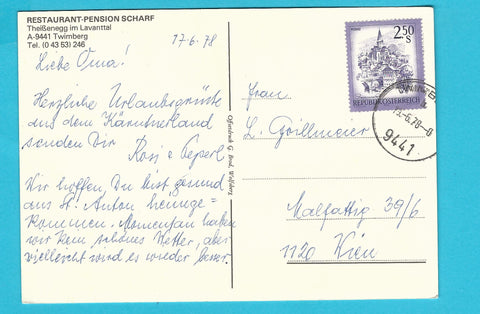 RESTAURANT-PENSION SCHARF
Theißenegg im Lavanttal
A-9441 Twimberg
Tel. (0 43 53) 246
17-6.78
Liebe Oma!
Herzliche Urlaubsgrüße
aus dem Kärntnerland
senden Dir
Rosi + Peperl
Wir hoffen, Du bist gesund
aus St. Anton heimge=
kommen. Momentan haben
wir kein schönes Wetter, aber
vielleicht wird es wieder besser.
Offsetdruck G. Wolfsberg
2.50 S
REPUBLIK ÖSTERREICH
.6.78-
9441
Frau
L. Grillmeier
Malfattig 39/6
1120 Wien